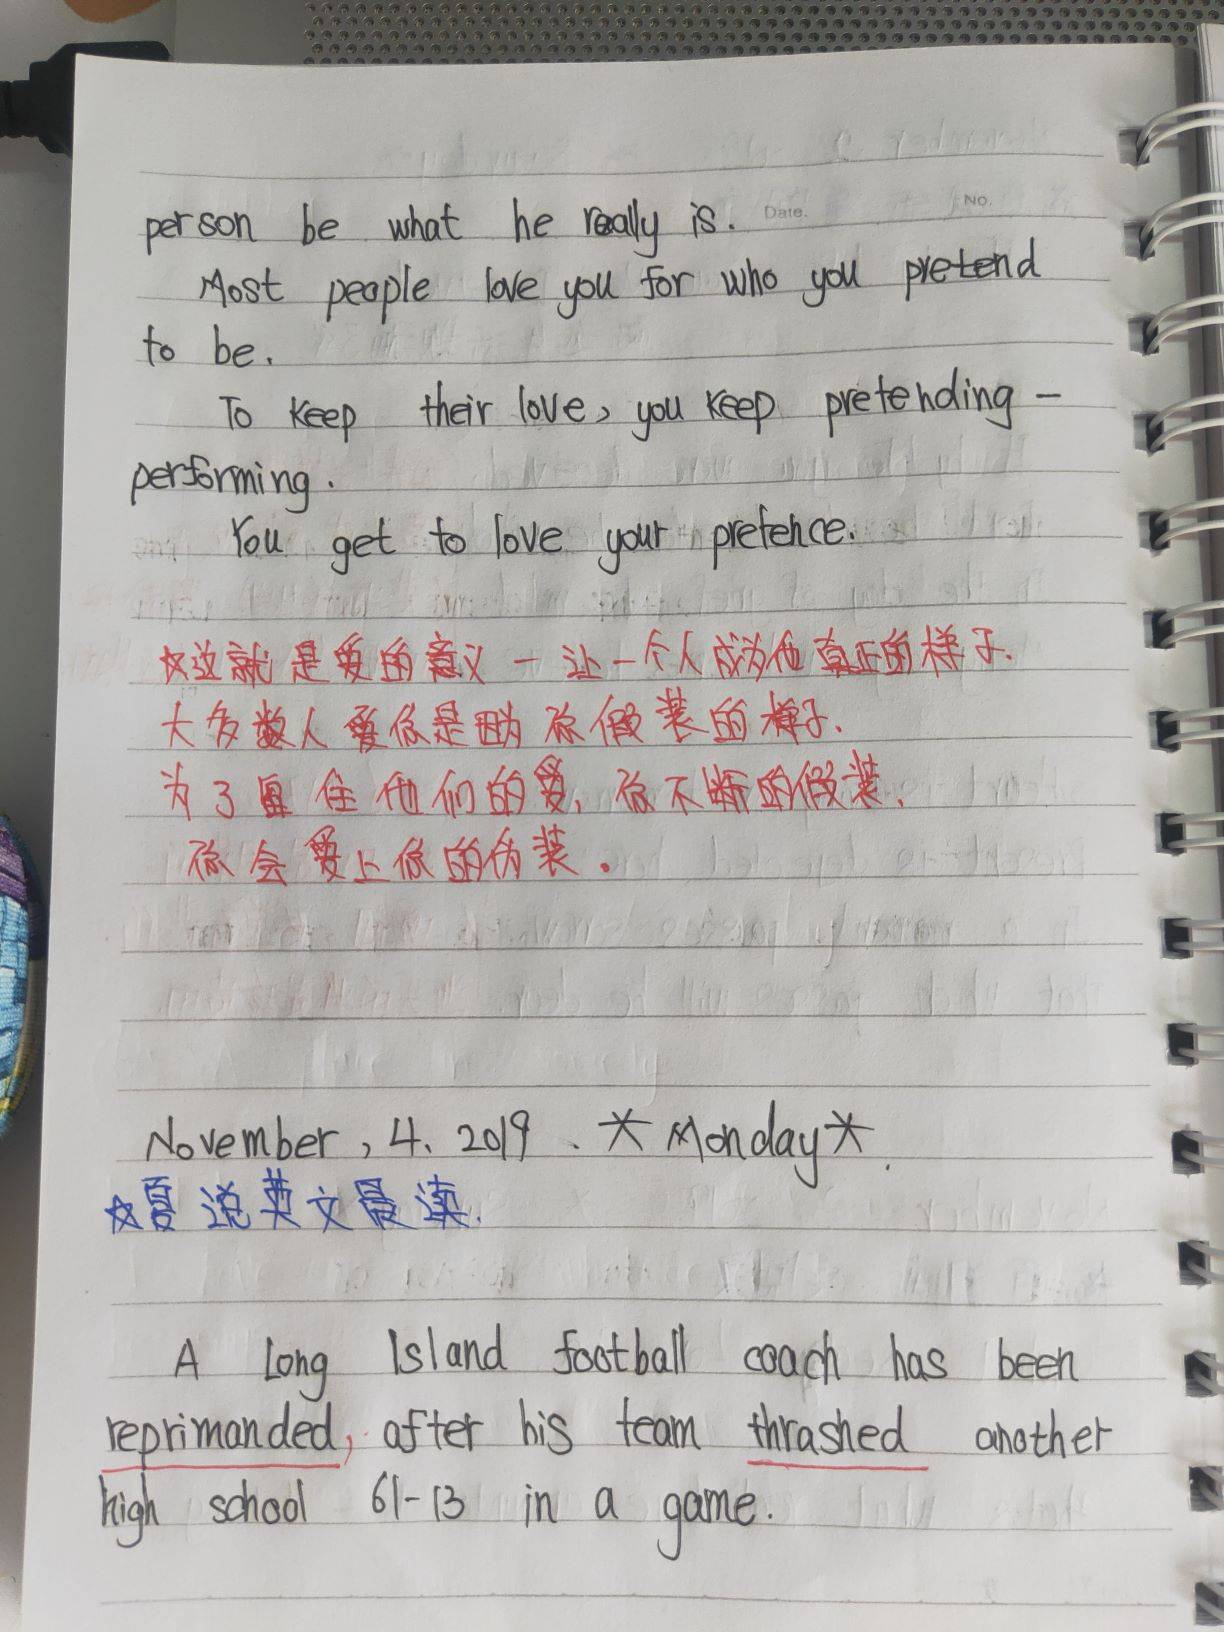 Date.
No.
person be what he really is.
Most people love you for who you pretend
to be.
To keep their love, you keep pretending -
performing.
You get to love your pretence.
☆这就是爱的意义一让一个人成为他真正的样子.
大多数人爱你是因为你假装的样子.
为了留住他们的爱,你不断的假装,
你会爱上你的伪装.
November, 4, 2019. *Monday*.
☆夏说英文晨读.
A Long Island football coach has been
reprimanded, after his team thrashed another
high school 61-13 in a game.